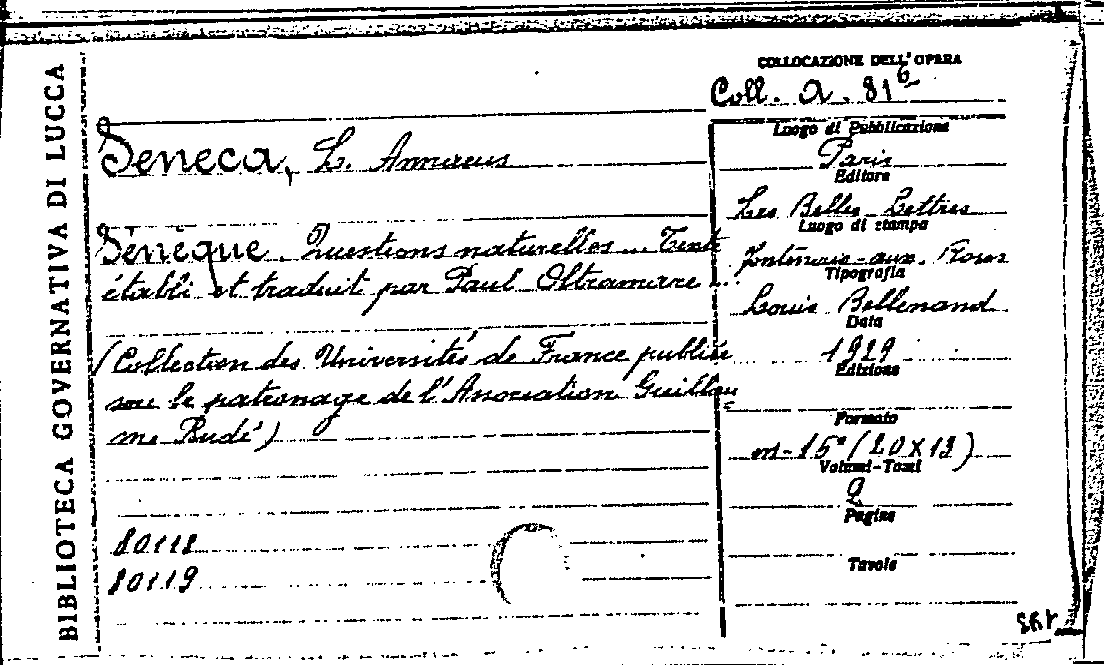 BIBLIOTECA GOVERNATIVA DI LUCCA
COLLOCAZIONE DELL'OPERA
Coll. a. 81 6
Seneca, L. Annaeus
Sénèque. Questions naturelles... Texte
établi et traduit par Paul Oltramare...
(Collection des Universités de France publiée
sou le patronage de l'Association Guillau
me Budé)
80118
80119
Luogo di Pubblicazione
Paris
Editore
Les Belles Lettres
Luogo di stampa
Fontenais-aux-Roses
Tipografia
Louis Bellenand
Data
1929
Edizione
Formato
in-15° (20x13)
Volumi-Tomi
2
Pagine
Tavole